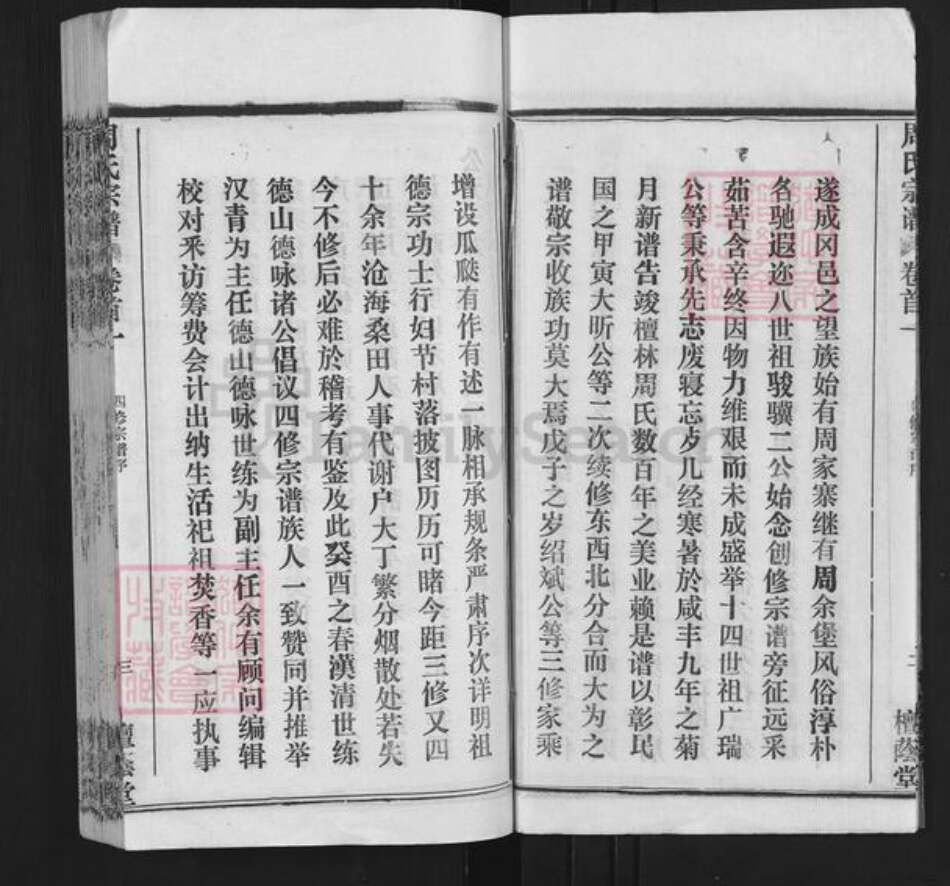 周氏宗谱
卷首一
檀蔭堂
遂成冈邑之望族始有周家寨继有周余堡风俗淳朴
各驰遐迩八世祖骏骥二公始念创修宗谱旁征远采
茹苦含辛终因物力维艰而未成盛举十四世祖广瑞
公等秉承先志废寝忘歺几经寒暑於咸丰九年之菊
月新谱告竣檀林周氏数百年之美业赖是谱以彰民
国之甲寅大昕公等二次续修东西北分合而大为之
谱敬宗收族功莫大焉戊子之岁绍斌公等三修家乘
增设瓜瓞有作有述一脉相承规条严肃序次详明祖
德宗功士行妇节村落披图历历可睹今距三修又四
十余年沧海桑田人事代谢户大丁繁分烟散处若失
今不修后必难於稽考有鉴及此癸酉之春漢清世练
德山德咏诸公倡议四修宗谱族人一致赞同并推举
汉青为主任德山德咏世练为副主任余有顾问编辑
校对釆访筹费会计出纳生活祀祖焚香等一应执事
周氏宗譜
卷首一
四修宗谱序
三
檀蔭堂
FamilySearch